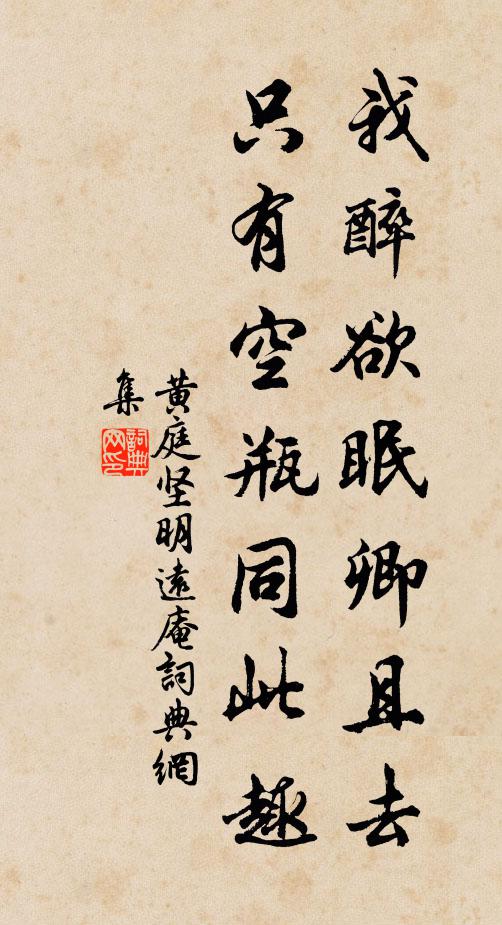 我醉欲眠卿且去
只有空瓶同此趣
黄庭坚明遠庵詞典網
集
詞典
网印